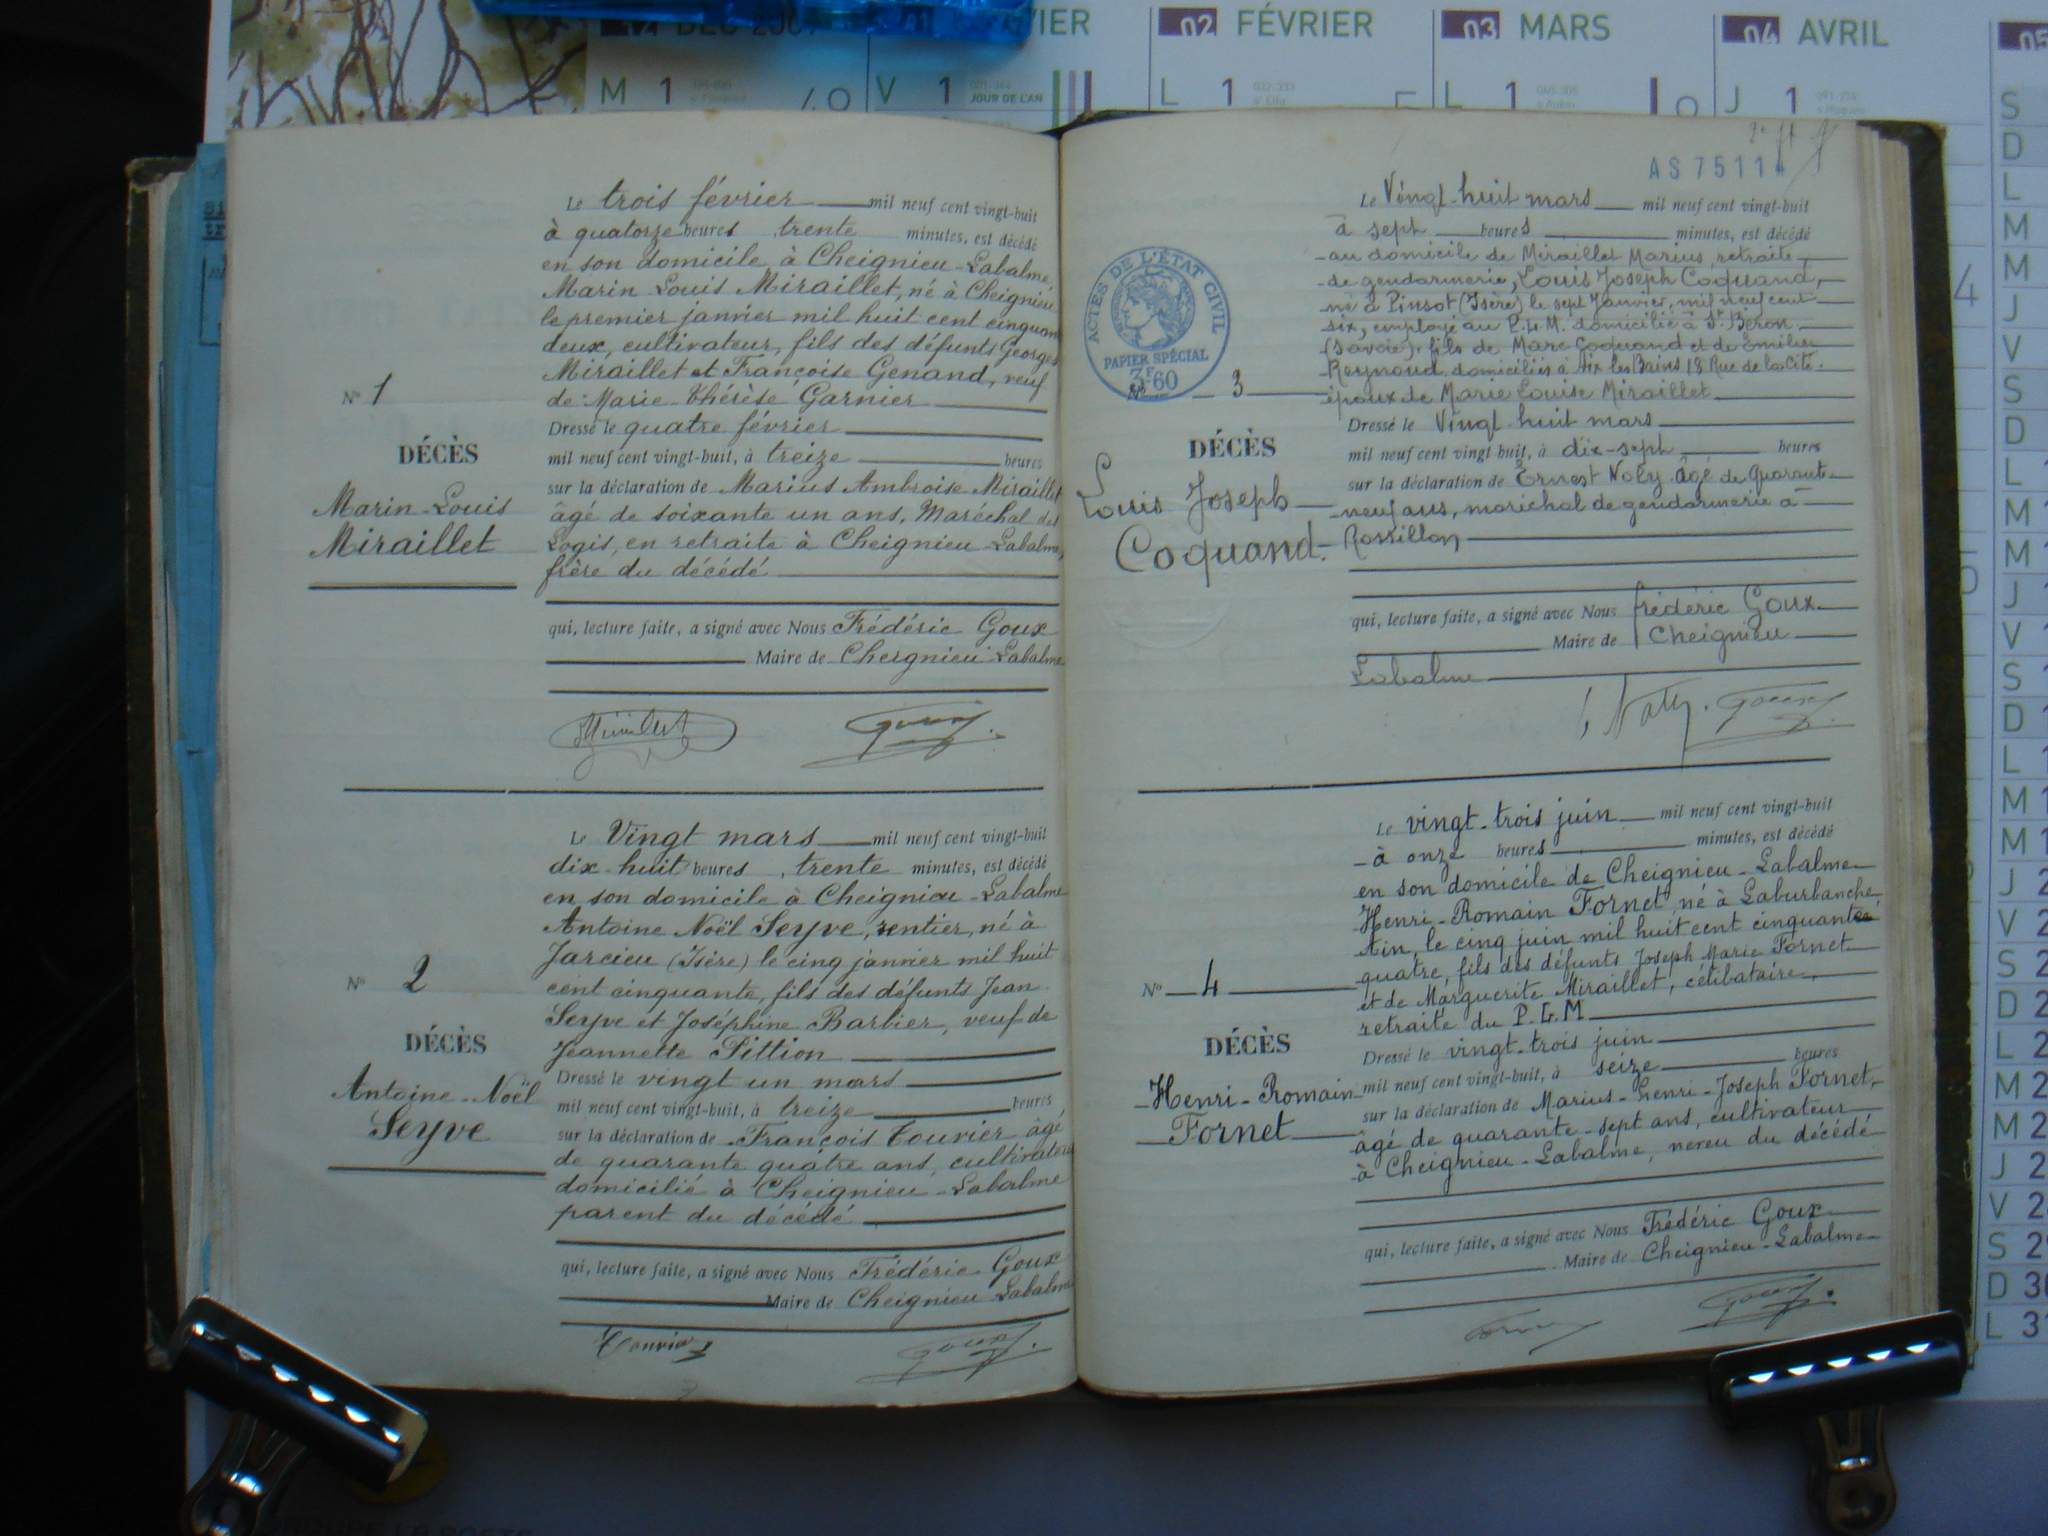 DEC
VIER
02 FÉVRIER
03 MARS
04 AVRIL
05
M 1
V 1 JOUR DE L'AN
L 1
L 1
J 1
Le trois février mil neuf cent vingt-huit
à quatorze heures trente minutes, est décédé
en son domicile à Cheignieu-Labalme,
Marin Louis Miraillet, né à Cheignieu
le premier janvier mil huit cent cinquan
deux, cultivateur, fils des défunts Georges
Miraillet et Françoise Genand, veuf
de Marie Thérèse Garnier
N° 1
DÉCÈS
Marin-Louis
Miraillet
Dressé le quatre février
mil neuf cent vingt-huit, à treize heures
sur la déclaration de Marius Ambroise Miraillet
âgé de soixante un ans, Maréchal des
Logis, en retraite à Cheignieu-Labalme,
frère du décédé
qui, lecture faite, a signé avec Nous Frédéric Goux
Maire de Cheignieu-Labalme
Le Vingt mars mil neuf cent vingt-huit
dix-huit heures, trente minutes, est décédé
en son domicile à Cheignieu-Labalme
Antoine Noël Seyve, rentier, né à
Jarcieu (Isère) le cinq janvier mil huit
cent cinquante, fils des défunts Jean
Seyve et Joséphine Barbier, veuf de
Jeannette Pittion
N° 2
DÉCÈS
Antoine-Noël
Seyve
Dressé le vingt un mars
mil neuf cent vingt-huit, à treize heures
sur la déclaration de François Touvier âgé
de quarante quatre ans, cultivateur
domicilié à Cheignieu-Labalme
parent du décédé
qui, lecture faite, a signé avec Nous Frédéric Goux
Maire de Cheignieu Labalme
Touvier
AS 75114
Le Vingt-huit mars mil neuf cent vingt-huit
à sept heures minutes, est décédé
au domicile de Miraillet Marius, retraité
de gendarmerie, Louis Joseph Coquand,
né à Pinsot (Isère) le sept Janvier, mil neuf cent
six, employé au P.L.M. domicilié à St Béron
(Savoie), fils de Marc Coquand et de Emilie
Reynaud domiciliés à Aix les Bains 18 Rue de la Cité.
époux de Marie Louise Miraillet
ACTES DE L'ÉTAT CIVIL
PAPIER SPÉCIAL
3F60
N° 3
DÉCÈS
Louis Joseph
Coquand.
Dressé le Vingt-huit mars
mil neuf cent vingt huit, à dix-sept heures
sur la déclaration de Ernest Noly âgé de Quarante
neuf ans, maréchal de gendarmerie à
Rossillon
qui, lecture faite, a signé avec Nous frédéric Goux
Maire de Cheignieu
Labalme
Le vingt-trois juin mil neuf cent vingt-huit
à onze heures minutes, est décédé
en son domicile de Cheignieu-Labalme
Henri-Romain Fornet, né à Laburbanche,
Ain, le cinq juin mil huit cent cinquante
quatre, fils des défunts Joseph Marie Fornet
et de Marguerite Miraillet, célibataire,
retraité du P.L.M
N° 4
DÉCÈS
Henri-Romain
Fornet
Dressé le vingt-trois juin
mil neuf cent vingt-huit, à seize heures
sur la déclaration de Marius-Henri-Joseph Fornet,
âgé de quarante-sept ans, cultivateur
à Cheignieu-Labalme, neveu du décédé
qui, lecture faite, a signé avec Nous Frédéric Goux
Maire de Cheignieu-Labalme